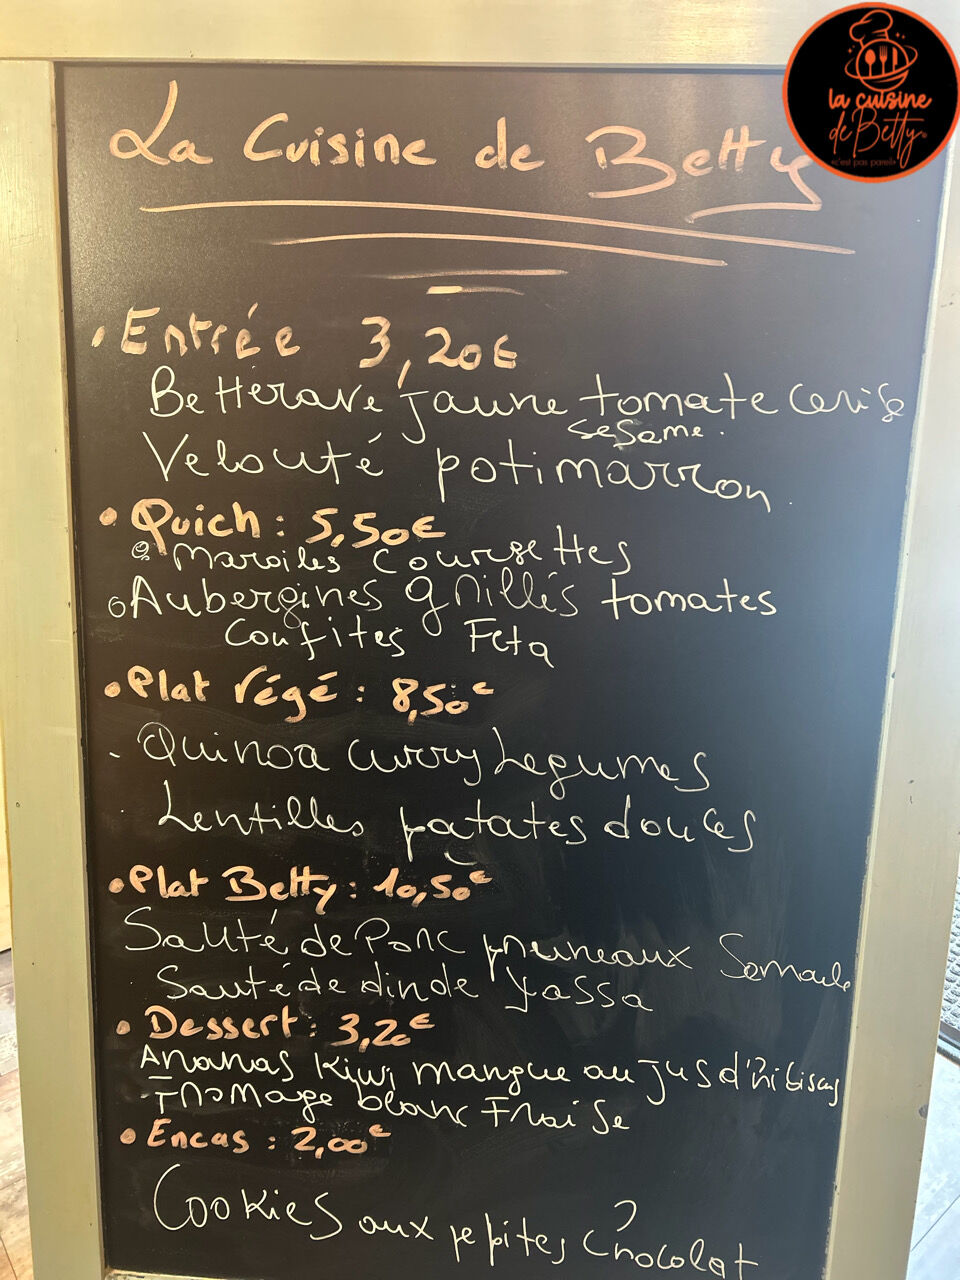 la cuisine
de Betty
«c'est pas pareil»
La Cuisine de Betty
• Entrée 3,20€
Betterave jaune tomate cerise
sesame.
Velouté potimarron
• Quich : 5,50€
Maroiles Courgettes
Aubergines grillés tomates
confites Feta
• Plat végé : 8,50€
- Quinoa curry Legumes
Lentilles patates douces
• Plat Betty : 10,50€
Sauté de Porc pruneaux Semoule
Sauté de dinde Yassa
• Dessert : 3,20€
Ananas Kiwi mangue au jus d'hibiscus
Fromage blanc Fraise
• Encas : 2,00€
Cookies aux pepites Chocolat